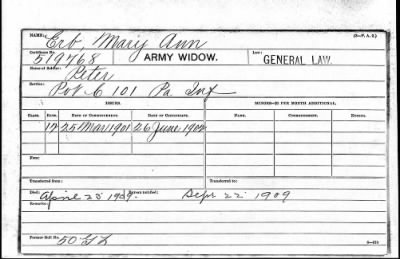 NAME: Erb, Mary Ann (3-F. A. 2.)
Certificate No. 519768 ARMY WIDOW. Law: GENERAL LAW.
Name of Soldier: Peter
Service: Pvt C 101 Pa Inf
ISSUES. MINORS—$2 PER MONTH ADDITIONAL.
CLASS. RATE. DATE OF COMMENCEMENT. DATE OF CERTIFICATE. NAME. COMMENCEMENT. ENDING.
12 25 Mar 1901 26 June 1902
Transferred from: Transferred to:
Died: April 25 1909. Bureau notified: Sept 22 1909
Remarks:
Former Roll No. 50